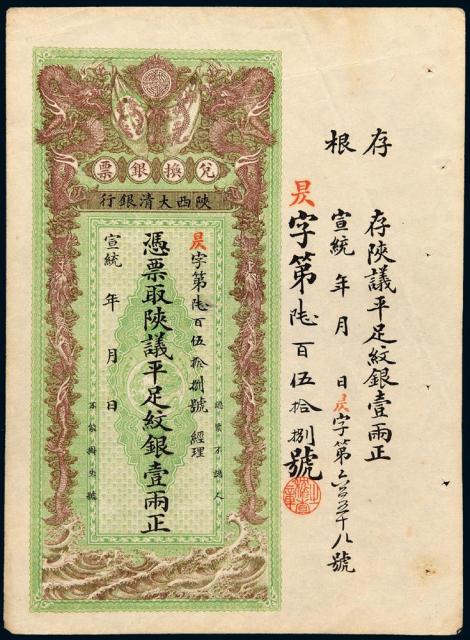 存根
存陝議平足紋銀壹兩正
宣統 年 月 日 昃字第六百五十八號
昃字第陸百伍拾捌號
兌換銀票
陝西大清銀行
認票不認人
昃字第陸百伍拾捌號 經理
憑票取陝議平足紋銀壹兩正
宣統 年 月 日